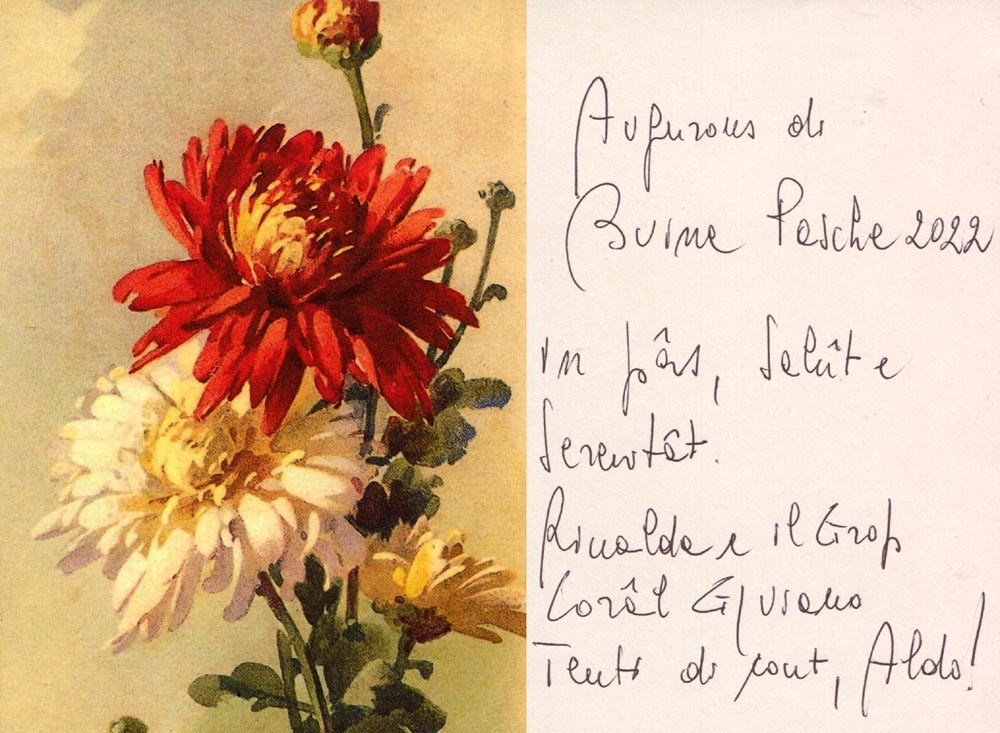 Augurons di
Buine Pasche 2022
in pâs, salût e
serenitât.
Rinalda e il Grop
Corâl Gjviano
Tenti di cont, Aldo!